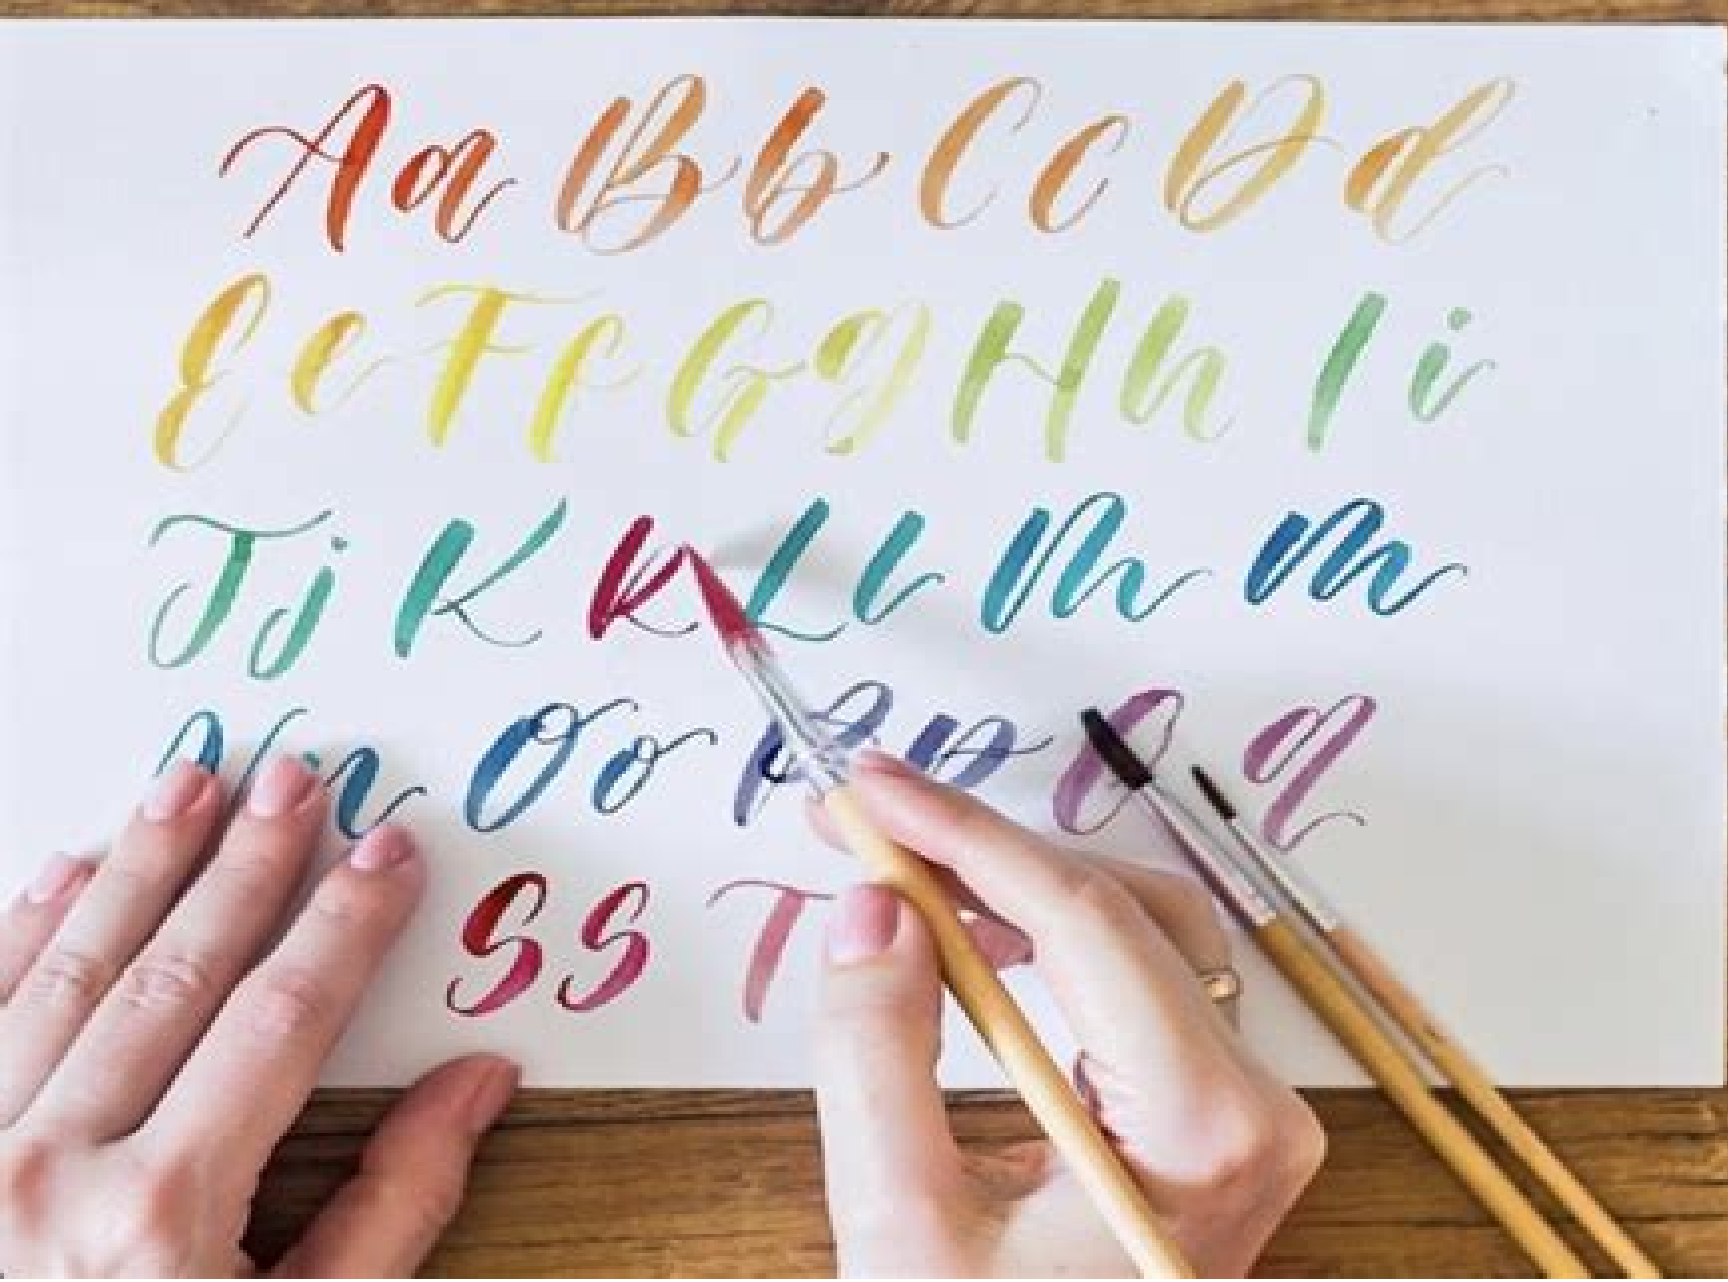 Aa Bb Cc Dd
Ee Ff Gg Hh Ii
Jj K k Ll Mm m
Nn Oo Pp Q q
Ss T